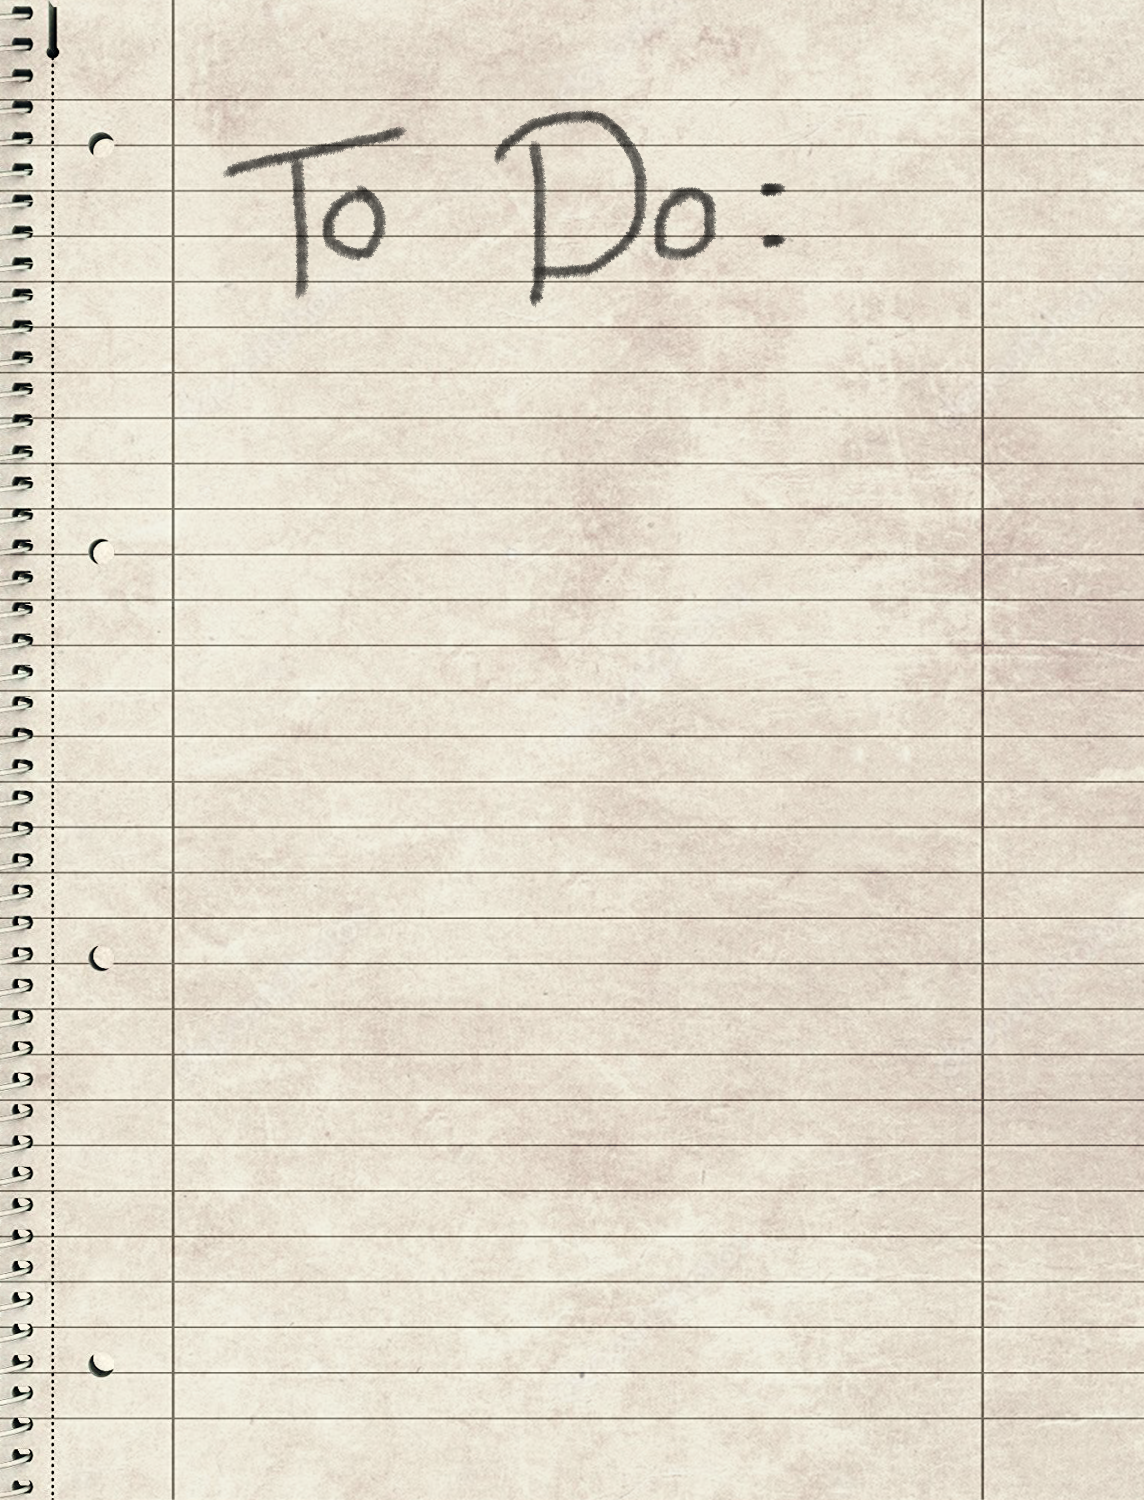 To Do: